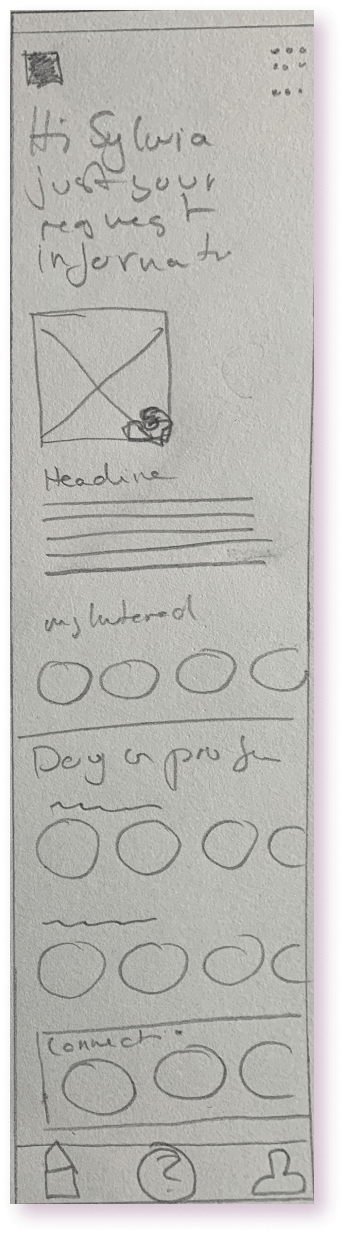 Hi Sylwia
just your
request
informat
Headline
my Interest
Day
Connect
?